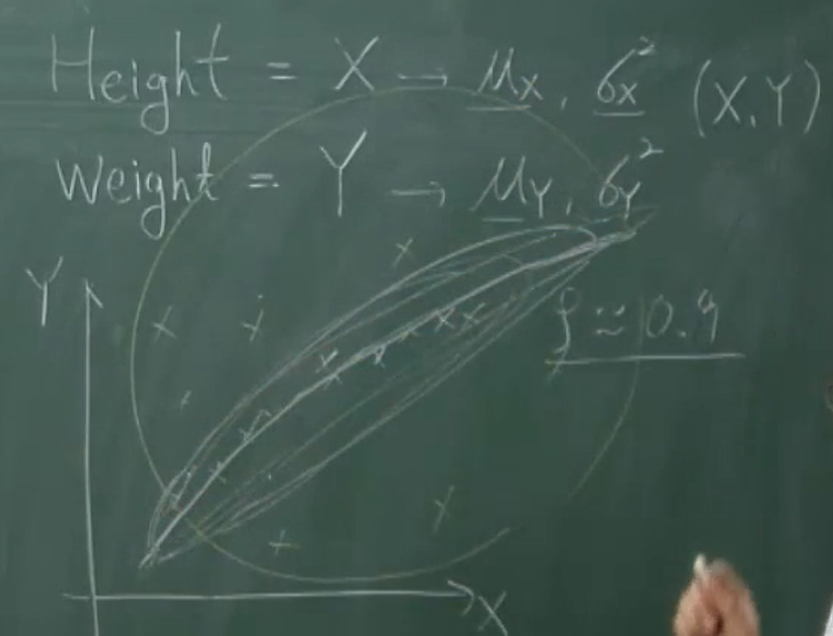 Height = X → μx, σx² (X,Y)
Weight = Y → μY, σY²
Y
ρ ≈ 0.9
X